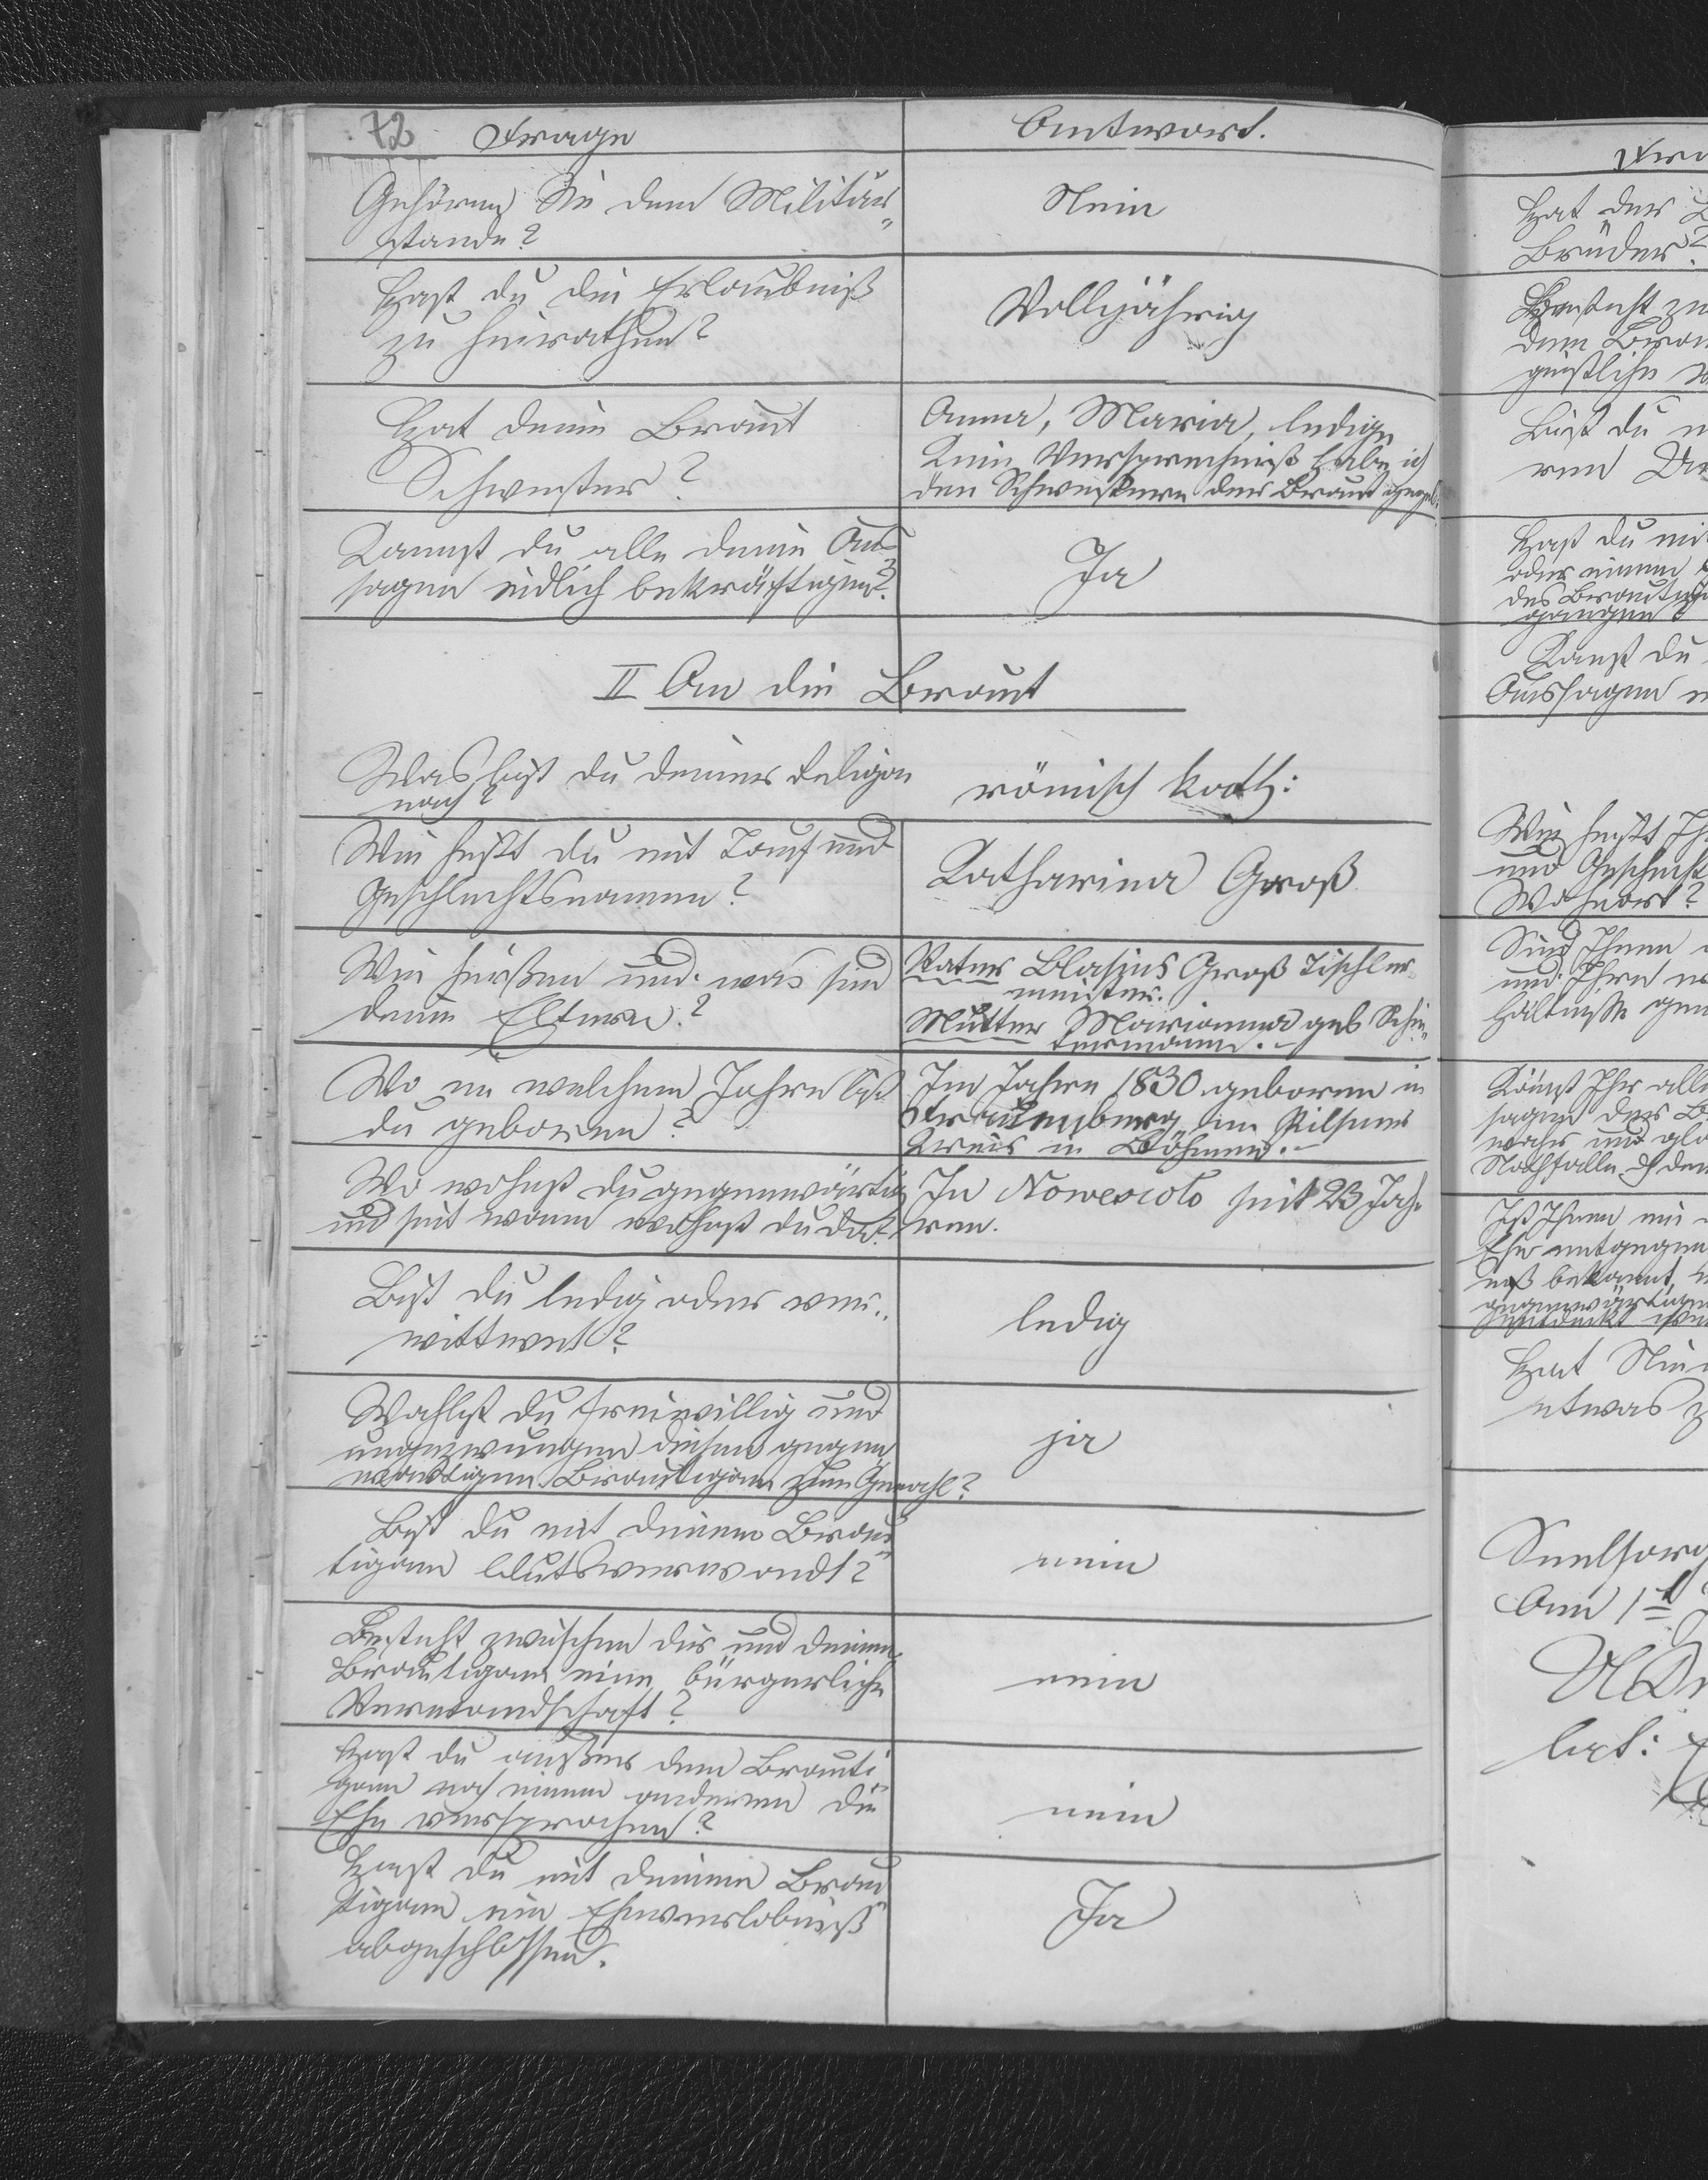 72 Frage
Antwort.
Gehören Sie dem Militär-
stande?
Nein
Hast du die Erlaubniß
zu heirathen?
Volljährig
Hat deine Braut
Schwester?
Anna, Maria, ledige
Kein Versprechniß habe ich
den Schwestern der Braut gegeb.
Kannst du alle deine Aus
sagen eidlich bekräftigen?
Ja
II An die Braut
Was bist du deiner Religion
nach?
römisch kath:
Wie heißt du mit Tauf und
Geschlechtsnamen?
Katharina Groß
Wie heißen und was sind
deine Eltern?
Vater Blasius Groß Tischler
meister.
Mutter Marianna geb Schin-
termann.
Wo im welchem Jahre bist
du geboren?
Im Jahre 1830 geboren in
im Pilsner
Kreis in Böhmen.
Wo wohnst du gegenwärtig
und seit wann wohnst du da?
In Nowesioło seit 23 Jah-
ren.
Bist du ledig oder ver-
wittwet?
ledig
Wahlst du freiwillig und
ungezwungen diesen gegen
wärtigen Brautigam zum Gemahl?
ja
Bist du mit deinem Brau
tigam blutsverwandt?
nein
Besteht zwischen dir und deinem
Bräutigam eine bürgerliche
Verwandschaft?
nein
Hast du außer dem Brauti
gam noch einem anderen die
Ehe versprochen?
nein
Hast du mit deinem Brau
tigam ein Eheverlobniß
abgeschlossen.
Ja
Hat der
Brüder?
Besteht zw
dem Brau
geistliche
Bist du
Hast du mit
oder einem
des Brautig
gangen?
Kanst du
Aussagen
Wie heißt Ih
und Geschlecht
Wohnort?
Sind Ihnen
und Ihre
hältnisse gen
Könnt Ihr alle
sagen der B
wahr und
Ist Ihnen ein
Ehe entgegen
niß bekannt,
gegenwärtigen
Hat
etwas z
Seelsorg
Am 1t